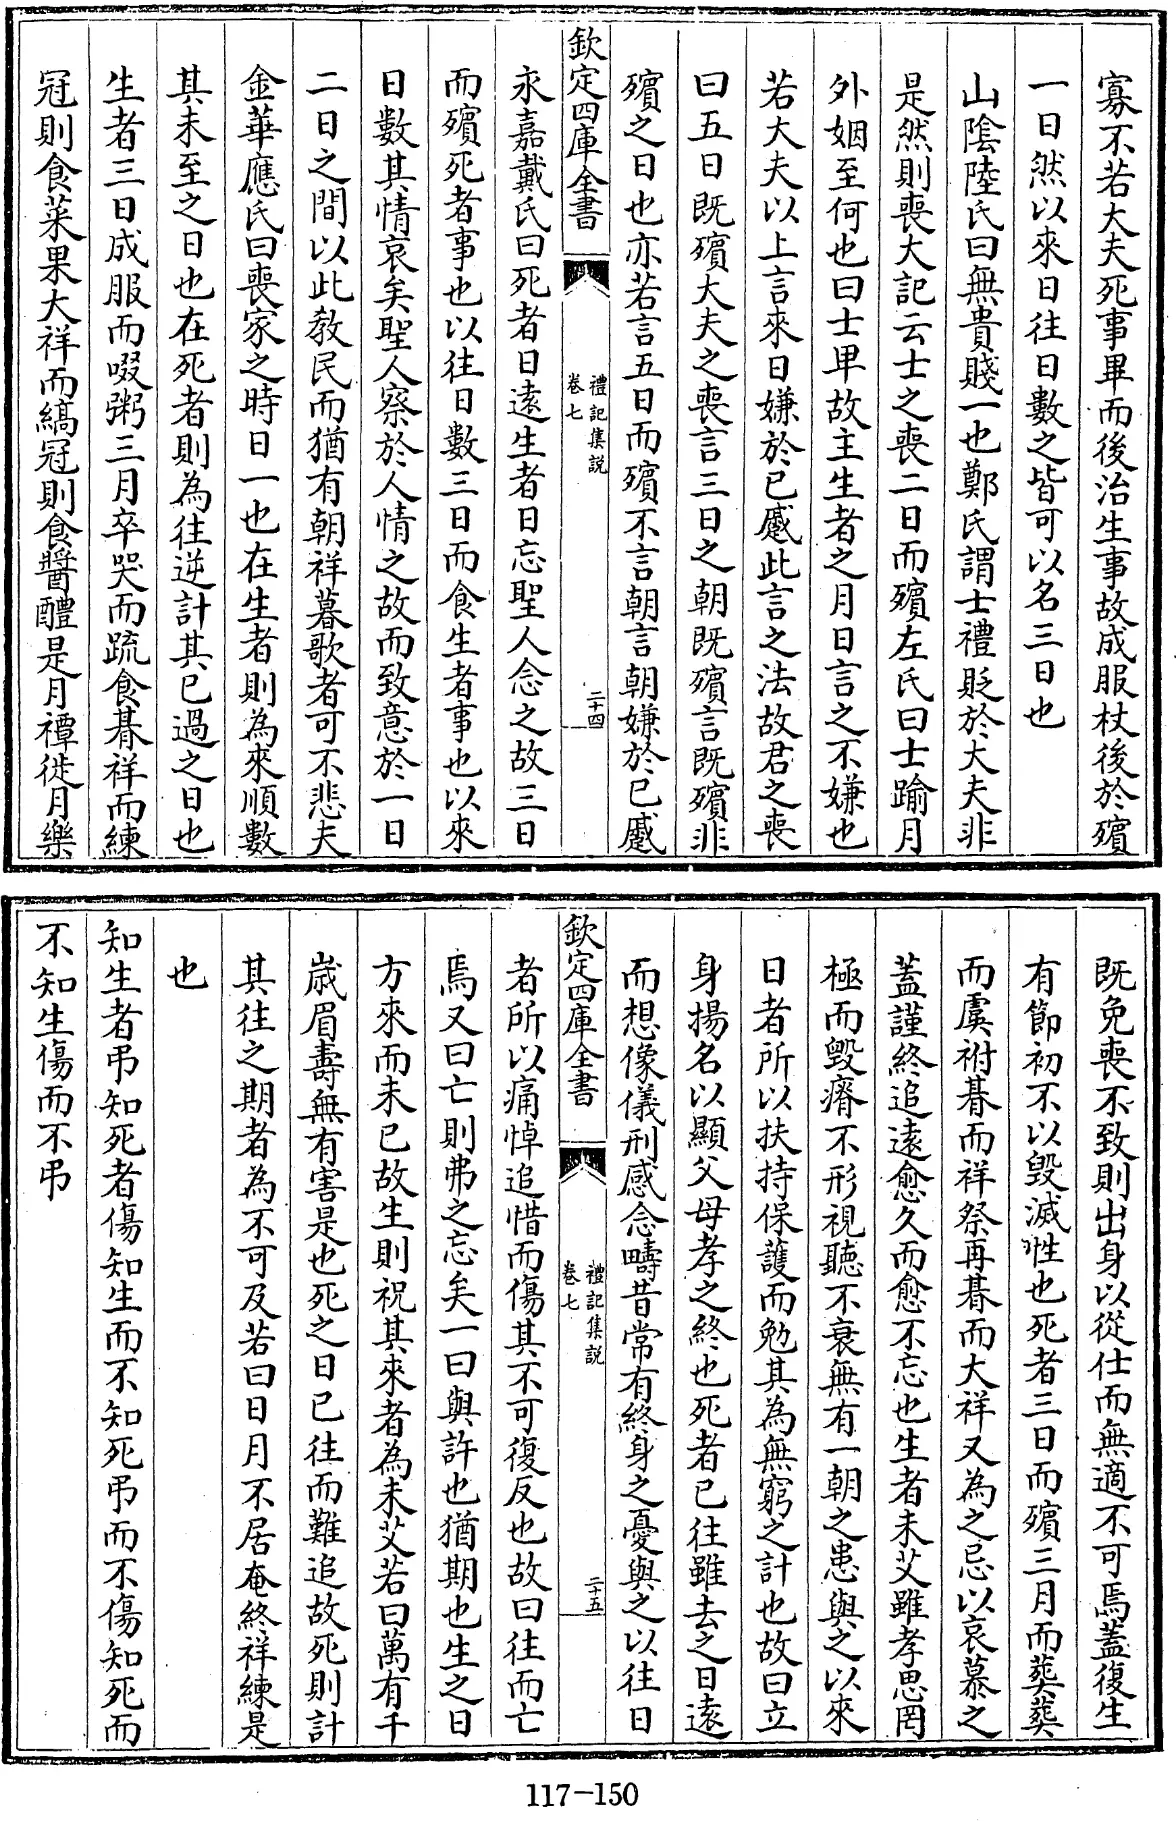 寡不若大夫死事畢而後治生事故成服杖後於殯
一日然以來日往日數之皆可以名三日也
山陰陸氏曰無貴賤一也鄭氏謂士禮貶於大夫非
是然則喪大記云士之喪二日而殯左氏曰士踰月
外姻至何也曰士卑故主生者之月日言之不嫌也
若大夫以上言來日嫌於已慼此言之法故君之喪
曰五日既殯大夫之喪言三日之朝既殯言既殯非
殯之日也亦若言五日而殯不言朝言朝嫌於已蹙
欽定四庫全書
禮記集説
卷七
二十四
永嘉戴氏曰死者日遠生者日忘聖人念之故三日
而殯死者事也以往日數三日而食生者事也以來
日數其情哀矣聖人察於人情之故而致意於一日
二日之間以此教民而猶有朝祥暮歌者可不悲夫
金華應氏曰喪家之時日一也在生者則為來順數
其未至之日也在死者則為往逆計其已過之日也
生者三日成服而啜粥三月卒哭而疏食朞祥而練
冠則食菜果大祥而縞冠則食醬醴是月禫徙月樂
既免喪不致則出身以從仕而無適不可焉蓋復生
有節初不以毀滅性也死者三日而殯三月而葬葬
而虞祔朞而祥祭再朞而大祥又為之忌以哀慕之
蓋謹終追遠愈久而愈不忘也生者未艾雖孝思罔
極而毀瘠不形視聽不衰無有一朝之患與之以來
日者所以扶持保護而勉其為無窮之計也故曰立
身揚名以顯父母孝之終也死者已往雖去之日遠
而想像儀刑感念疇昔常有終身之憂與之以往日
欽定四庫全書
禮記集説
卷七
二十五
者所以痛悼追惜而傷其不可復反也故曰往而亡
焉又曰亡則弗之忘矣一曰與許也猶期也生之日
方來而未已故生則祝其來者為未艾若曰萬有千
歲眉壽無有害是也死之日已往而難追故死則計
其往之期者為不可及若曰日月不居奄終祥練是
也
知生者弔知死者傷知生而不知死弔而不傷知死而
不知生傷而不弔
117-150